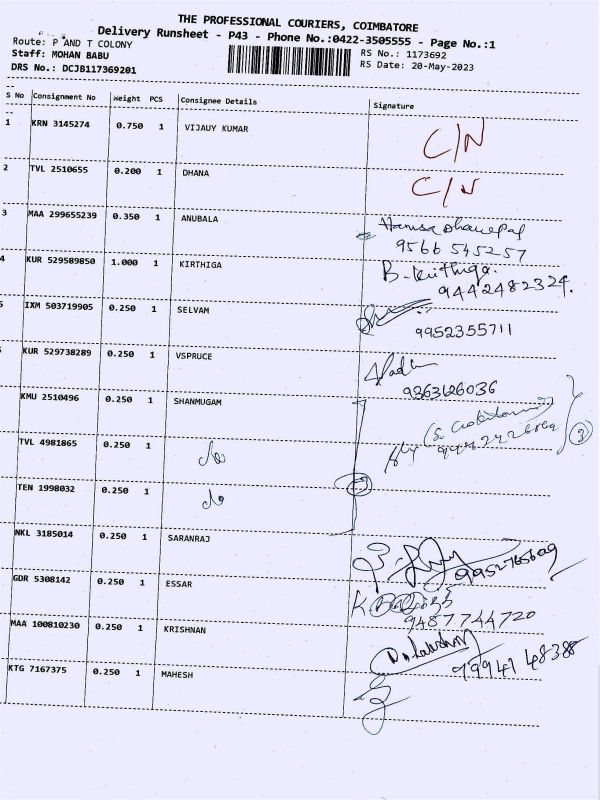 THE PROFESSIONAL COURIERS, COIMBATORE
Delivery Runsheet - P43 - Phone No.:0422-3505555 - Page No.:1
Route: P AND T COLONY
RS No.: 1173692
Staff: MOHAN BABU
RS Date: 20-May-2023
DRS No.: DCJB117369201
S No Consignment No Weight PCS Consignee Details Signature
1 KRN 3145274 0.750 1 VIJAUY KUMAR C/N
2 TVL 2510655 0.200 1 DHANA C/N
3 MAA 299655239 0.350 1 ANUBALA
9566 545257
4 KUR 529589850 1.000 1 KIRTHIGA B-Kirthiga.
9442482324.
5 IXM 503719905 0.250 1 SELVAM
9952355711
KUR 529738289 0.250 1 VSPRUCE
9363626036
KMU 2510496 0.250 1 SHANMUGAM
TVL 4981865 0.250 1 do
3
TEN 1998032 0.250 1 do
NKL 3185014 0.250 1 SARANRAJ
GDR 5308142 0.250 1 ESSAR
9487744720
MAA 100810230 0.250 1 KRISHNAN
KTG 7167375 0.250 1 MAHESH